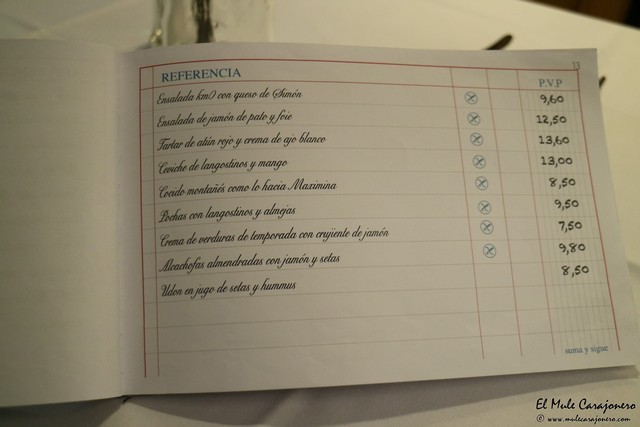 13
REFERENCIA P.V.P
Ensalada km0 con queso de Simón 9,60
Ensalada de jamón de pato y foie 12,50
Tartar de atún rojo y crema de ajo blanco 13,60
Ceviche de langostinos y mango 13,00
Cocido montañés como lo hacia Maximina 8,50
Pochas con langostinos y almejas 9,50
Crema de verduras de temporada con crujiente de jamón 7,50
Alcachofas almendradas con jamón y setas 9,80
Udon en jugo de setas y hummus 8,50
suma y sigue
El Mule Carajonero
© www.mulecarajonero.com